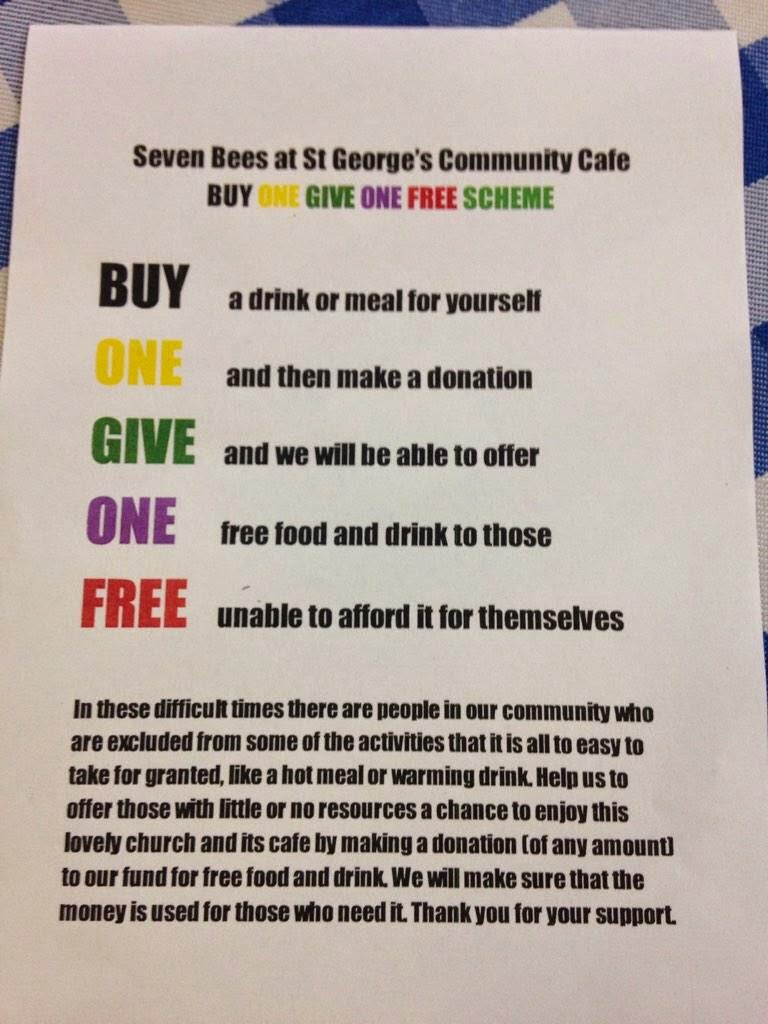 Seven Bees at St George's Community Cafe
BUY ONE GIVE ONE FREE SCHEME
BUY a drink or meal for yourself
ONE and then make a donation
GIVE and we will be able to offer
ONE free food and drink to those
FREE unable to afford it for themselves
In these difficult times there are people in our community who
are excluded from some of the activities that it is all to easy to
take for granted, like a hot meal or warming drink. Help us to
offer those with little or no resources a chance to enjoy this
lovely church and its cafe by making a donation (of any amount)
to our fund for free food and drink. We will make sure that the
money is used for those who need it. Thank you for your support.